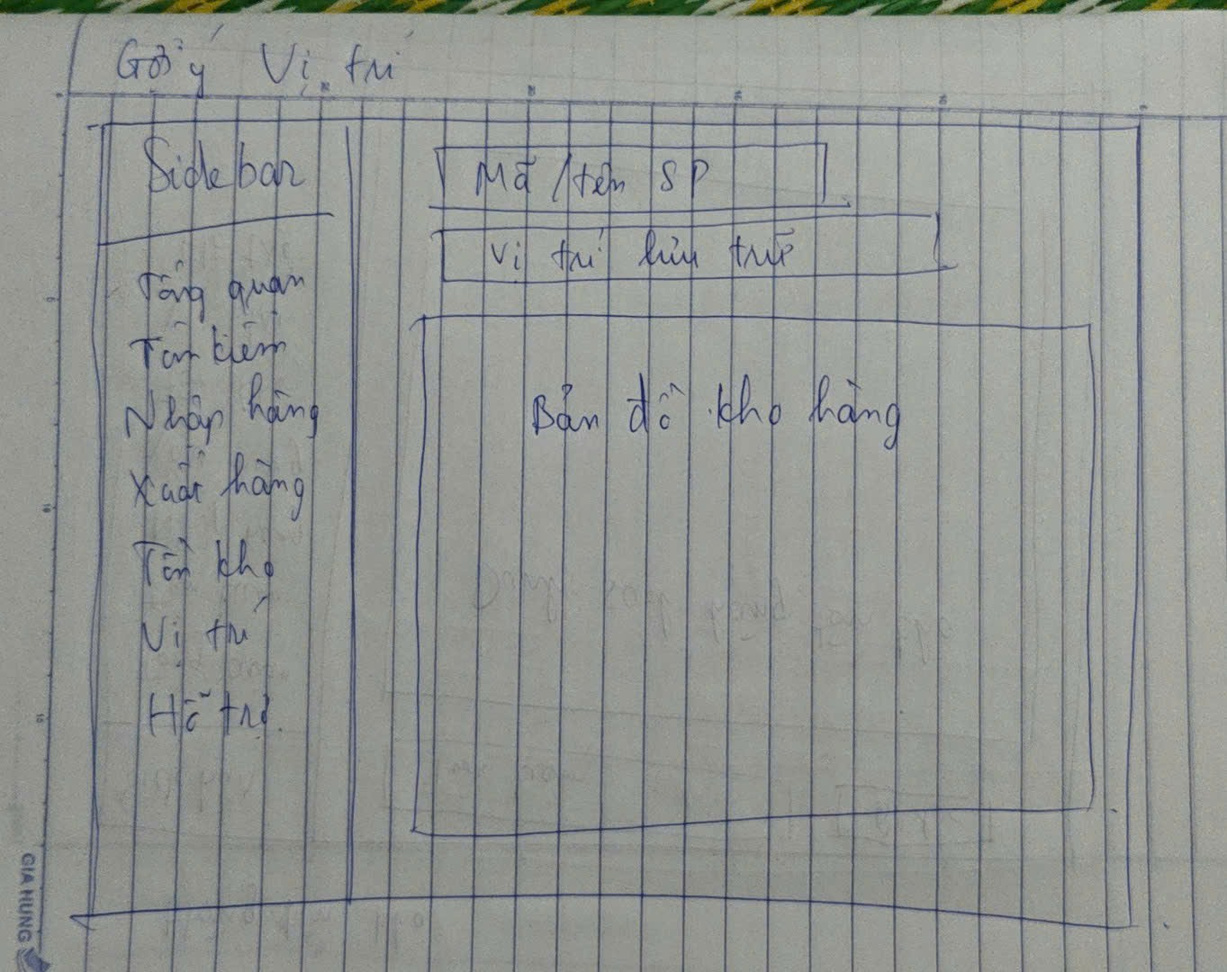 Gợi ý Vị trí
Sidebar
Tổng quan
Tìm kiếm
Nhập hàng
Xuất hàng
Tồn kho
Vị trí
Hỗ trợ
Mã / tên SP
Vị trí lưu trữ
Bản đồ kho hàng
GIA HUNG